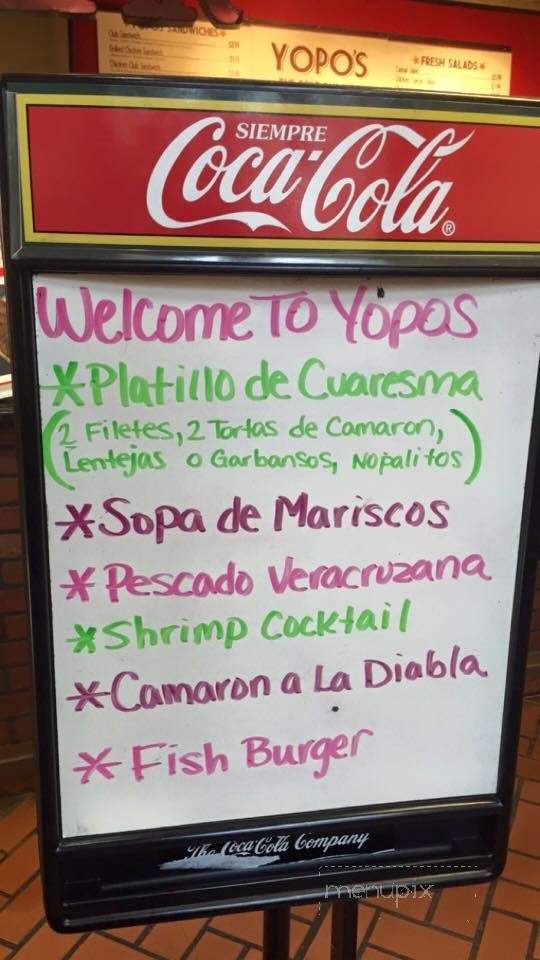 SANDWICHES
Club Sandwich
Grilled Chicken Sandwich
Chicken Club Sandwich
YOPO'S
*FRESH SALADS*
SIEMPRE
Coca-Cola®
Welcome To Yopos
*Platillo de Cuaresma
(2 Filetes, 2 Tortas de Camaron,
Lentejas o Garbansos, Nopalitos)
*Sopa de Mariscos
*Pescado Veracruzana
*Shrimp Cocktail
*Camaron a La Diabla
*Fish Burger
The Coca-Cola Company
menupix